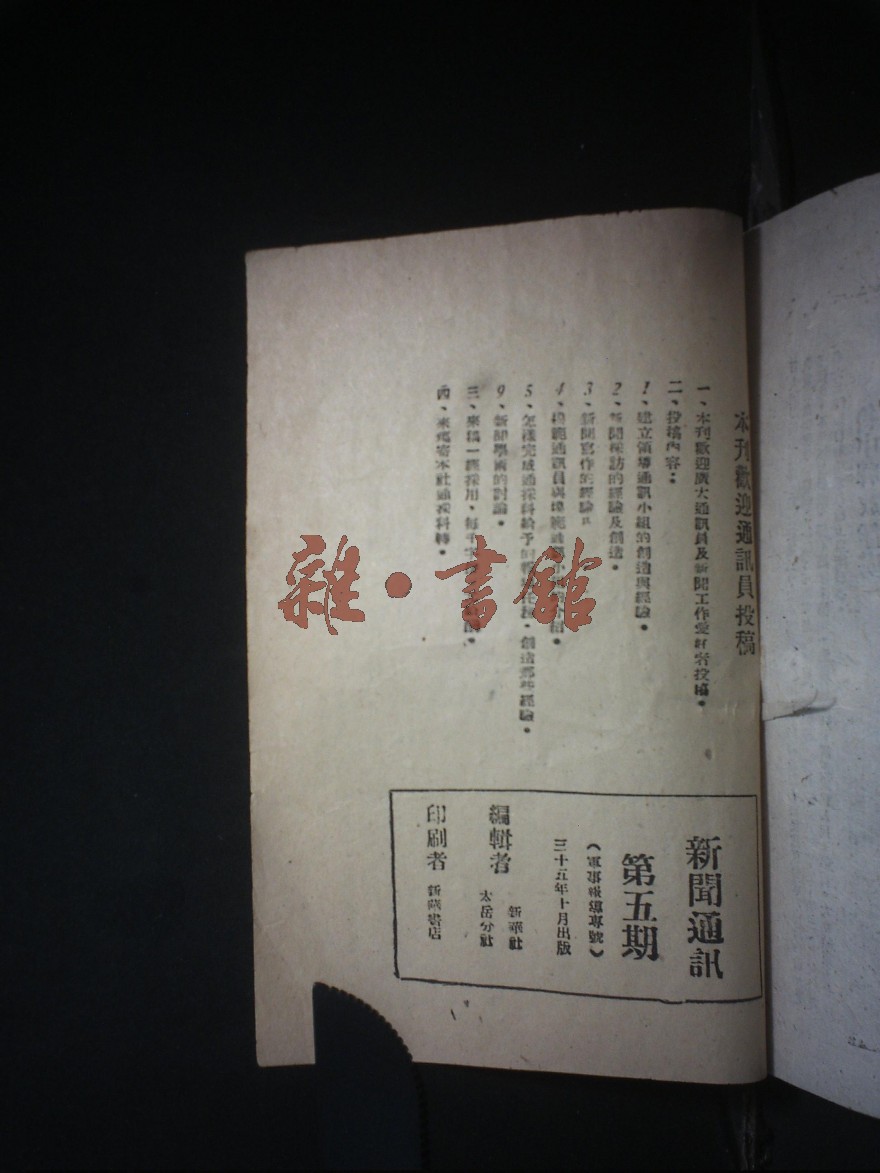 本刊歡迎通訊員投稿
一、本刊歡迎廣大通訊員及新聞工作愛好者投稿。
二、投稿內容：
1、建立領導通訊小組的創造與經驗。
2、新聞採訪的經驗及創造。
3、新聞寫作的經驗。
4、模範通訊員與模範通訊小組的介紹。
5、怎樣完成通採科給予的
創造那些經驗。
9、新聞學術的討論。
三、來稿一經採用，每千字
四、來稿寄本社通採科轉。
新聞通訊
第五期
（軍事報導專號）
三十五年十月出版
編輯者 新華社
太岳分社
印刷者 新華書店
雜·書館